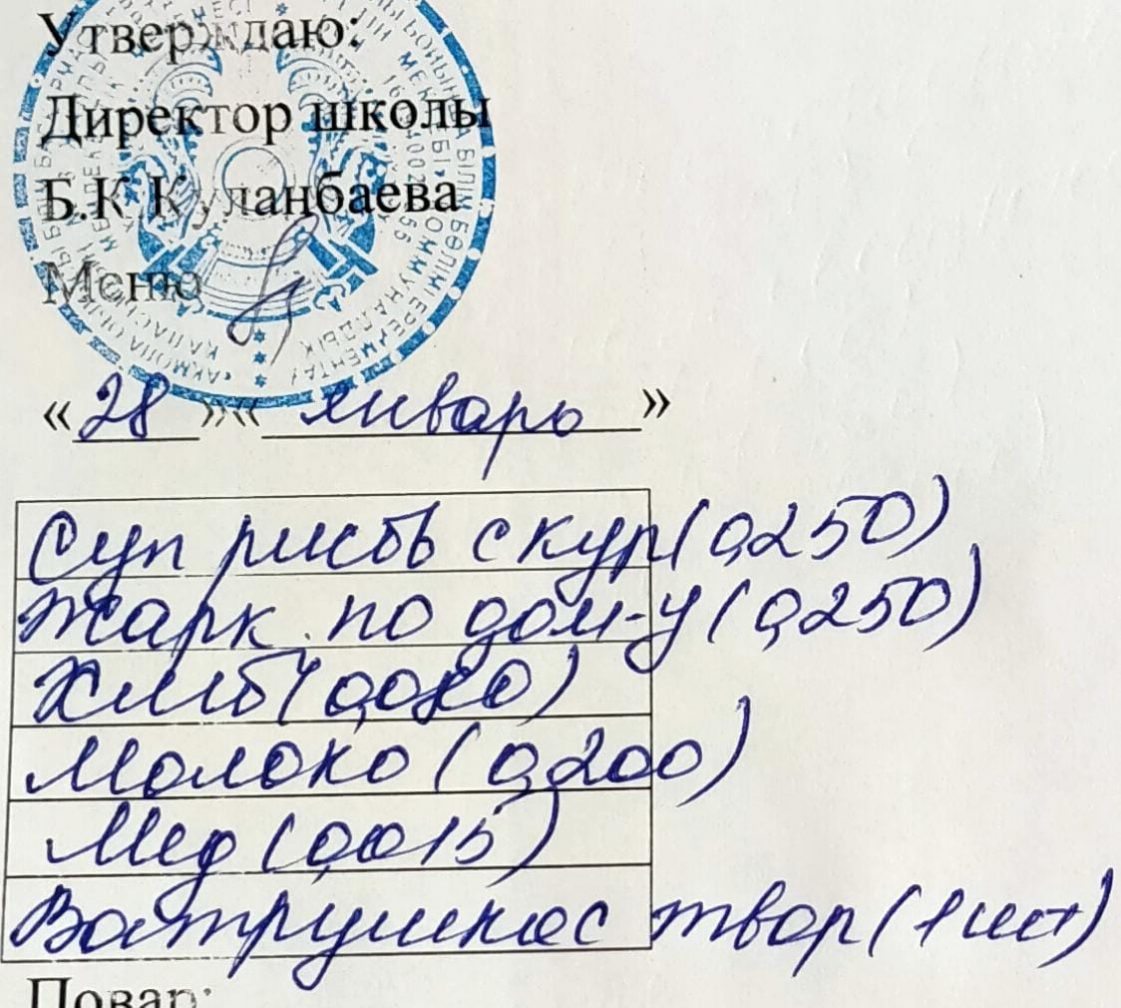 Утверждаю:
Директор школы
Б.К Куланбаева
Меню
«28» «январь»
Суп рисов с кур (0,250)
Жарк. по дом-у (0,250)
Хлеб (0,080)
Молоко (0,200)
Мед (0,015)
Ватрушка с твор (1 шт)
Повар: